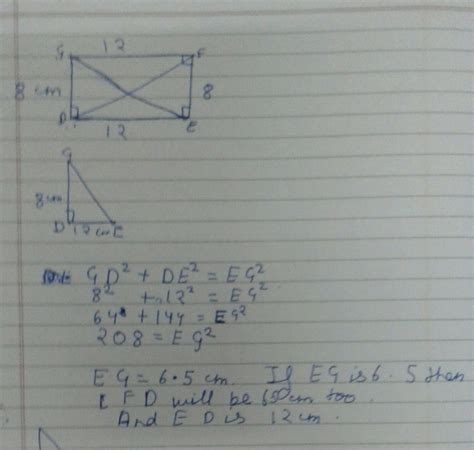 G 12 F
8 cm 8
D 12 E
G
8cm
D 12 cm E
GD² + DE² = EG²
8² + 12² = EG²
64 + 144 = EG²
208 = EG²
EG = 6.5 cm. If EG is 6.5 then
FD will be cm too.
And ED is 12cm.